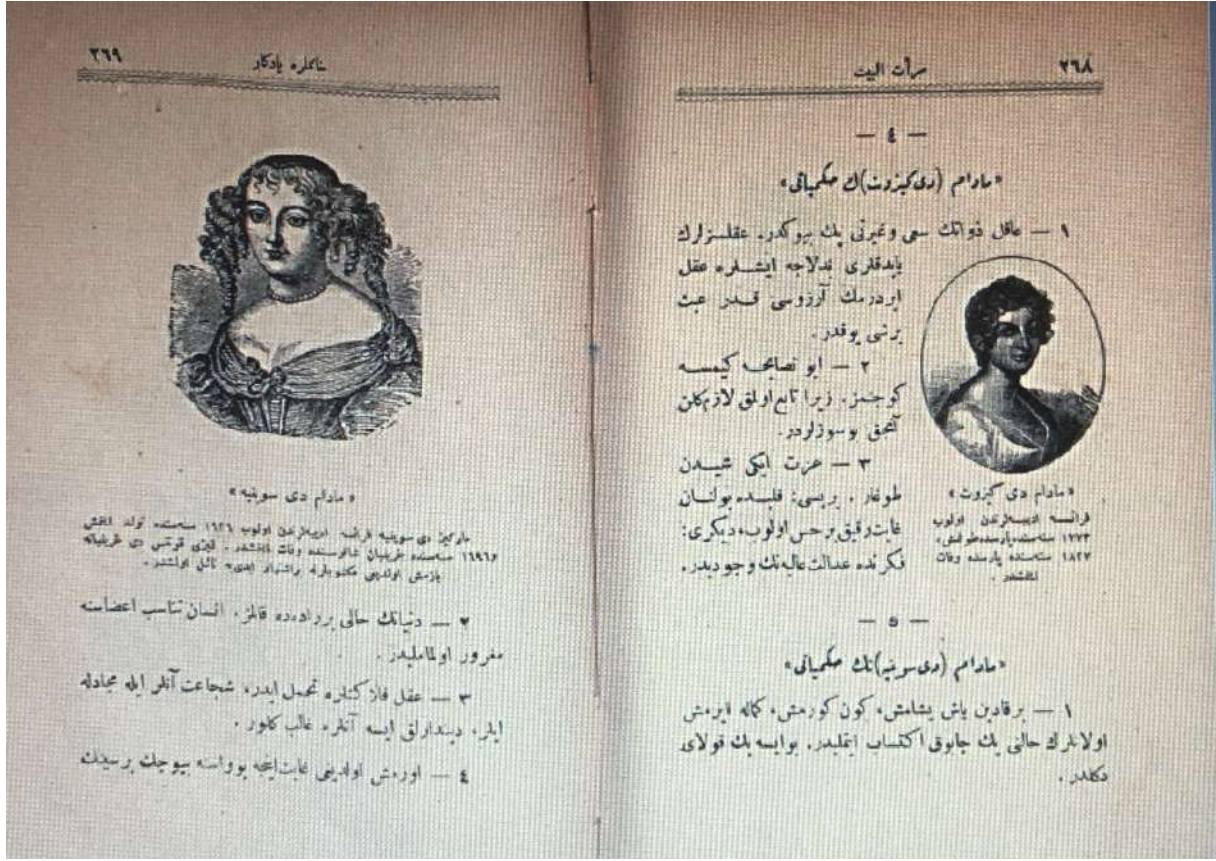 ٢٦٨
مرأت البيت
— ٤ —
«مادام (دی کیزوت)ك حکمیاتی»
١ — عاقل ذواتك سعی وغیرتی پك بیوکدر. عقلسزلرك
یابدقلری بدلاجه ایشلره عقل
ایردرمك آرزوسی قدر عبث
برشی یوقدر.
٢ — ایو نصایحه کیمسه
کوجنمز. زیرا تابع اولمق لازمکلن
آنجق بوسوزلردر.
٣ — عزت ایکی شیدن
طوغار. بریسی: قلبده بولنان
غایت رقیق برحس اولوب، دیکری:
فکرنده عدالت عالیه‌نك وجودیدر.
«مادام دی کیزوت»
فرانسه ادیبه‌لرندن اولوب
١٧٧٣ سنه‌سنده پارسده طوغمش،
١٨٢٧ سنه‌سنده پارسده وفات
ایتمشدر.
— ٥ —
«مادام (دی سوینیه)نك حکمیاتی»
١ — برقادین یاش یشامش، کون کورمش، کماله ایرمش
اولانلرك حالنی پك چابوق اکتساب ایتملیدر. بوایسه پك قولای
دکلدر.
٢٦٩
یادکار
«مادام دی سوینیه»
مارکیز دی سوینیه فرانسه ادیبه‌لرندن اولوب ١٦٢٦ سنه‌سنده تولد ایتمش
و١٦٩٦ سنه‌سنده وفات ایتمشدر. قیزی قونتس دی
یازمش اولدیغی مکتوبلرله اشتهار نائل اولمشدر.
٢ — دنیانك حالی برراده‌ده قالمز. انسان تناسب اعضاسنه
مغرور اولماملیدر.
٣ — عقل فلاکتلره تحمل ایدر، شجاعت آنلر ایله مجادله
ایلر، دیندارلق ایسه آنلره غالب کلور.
٤ — اورمش اولدیغی غایت اینجه یوواسنه بیوجك برسینك